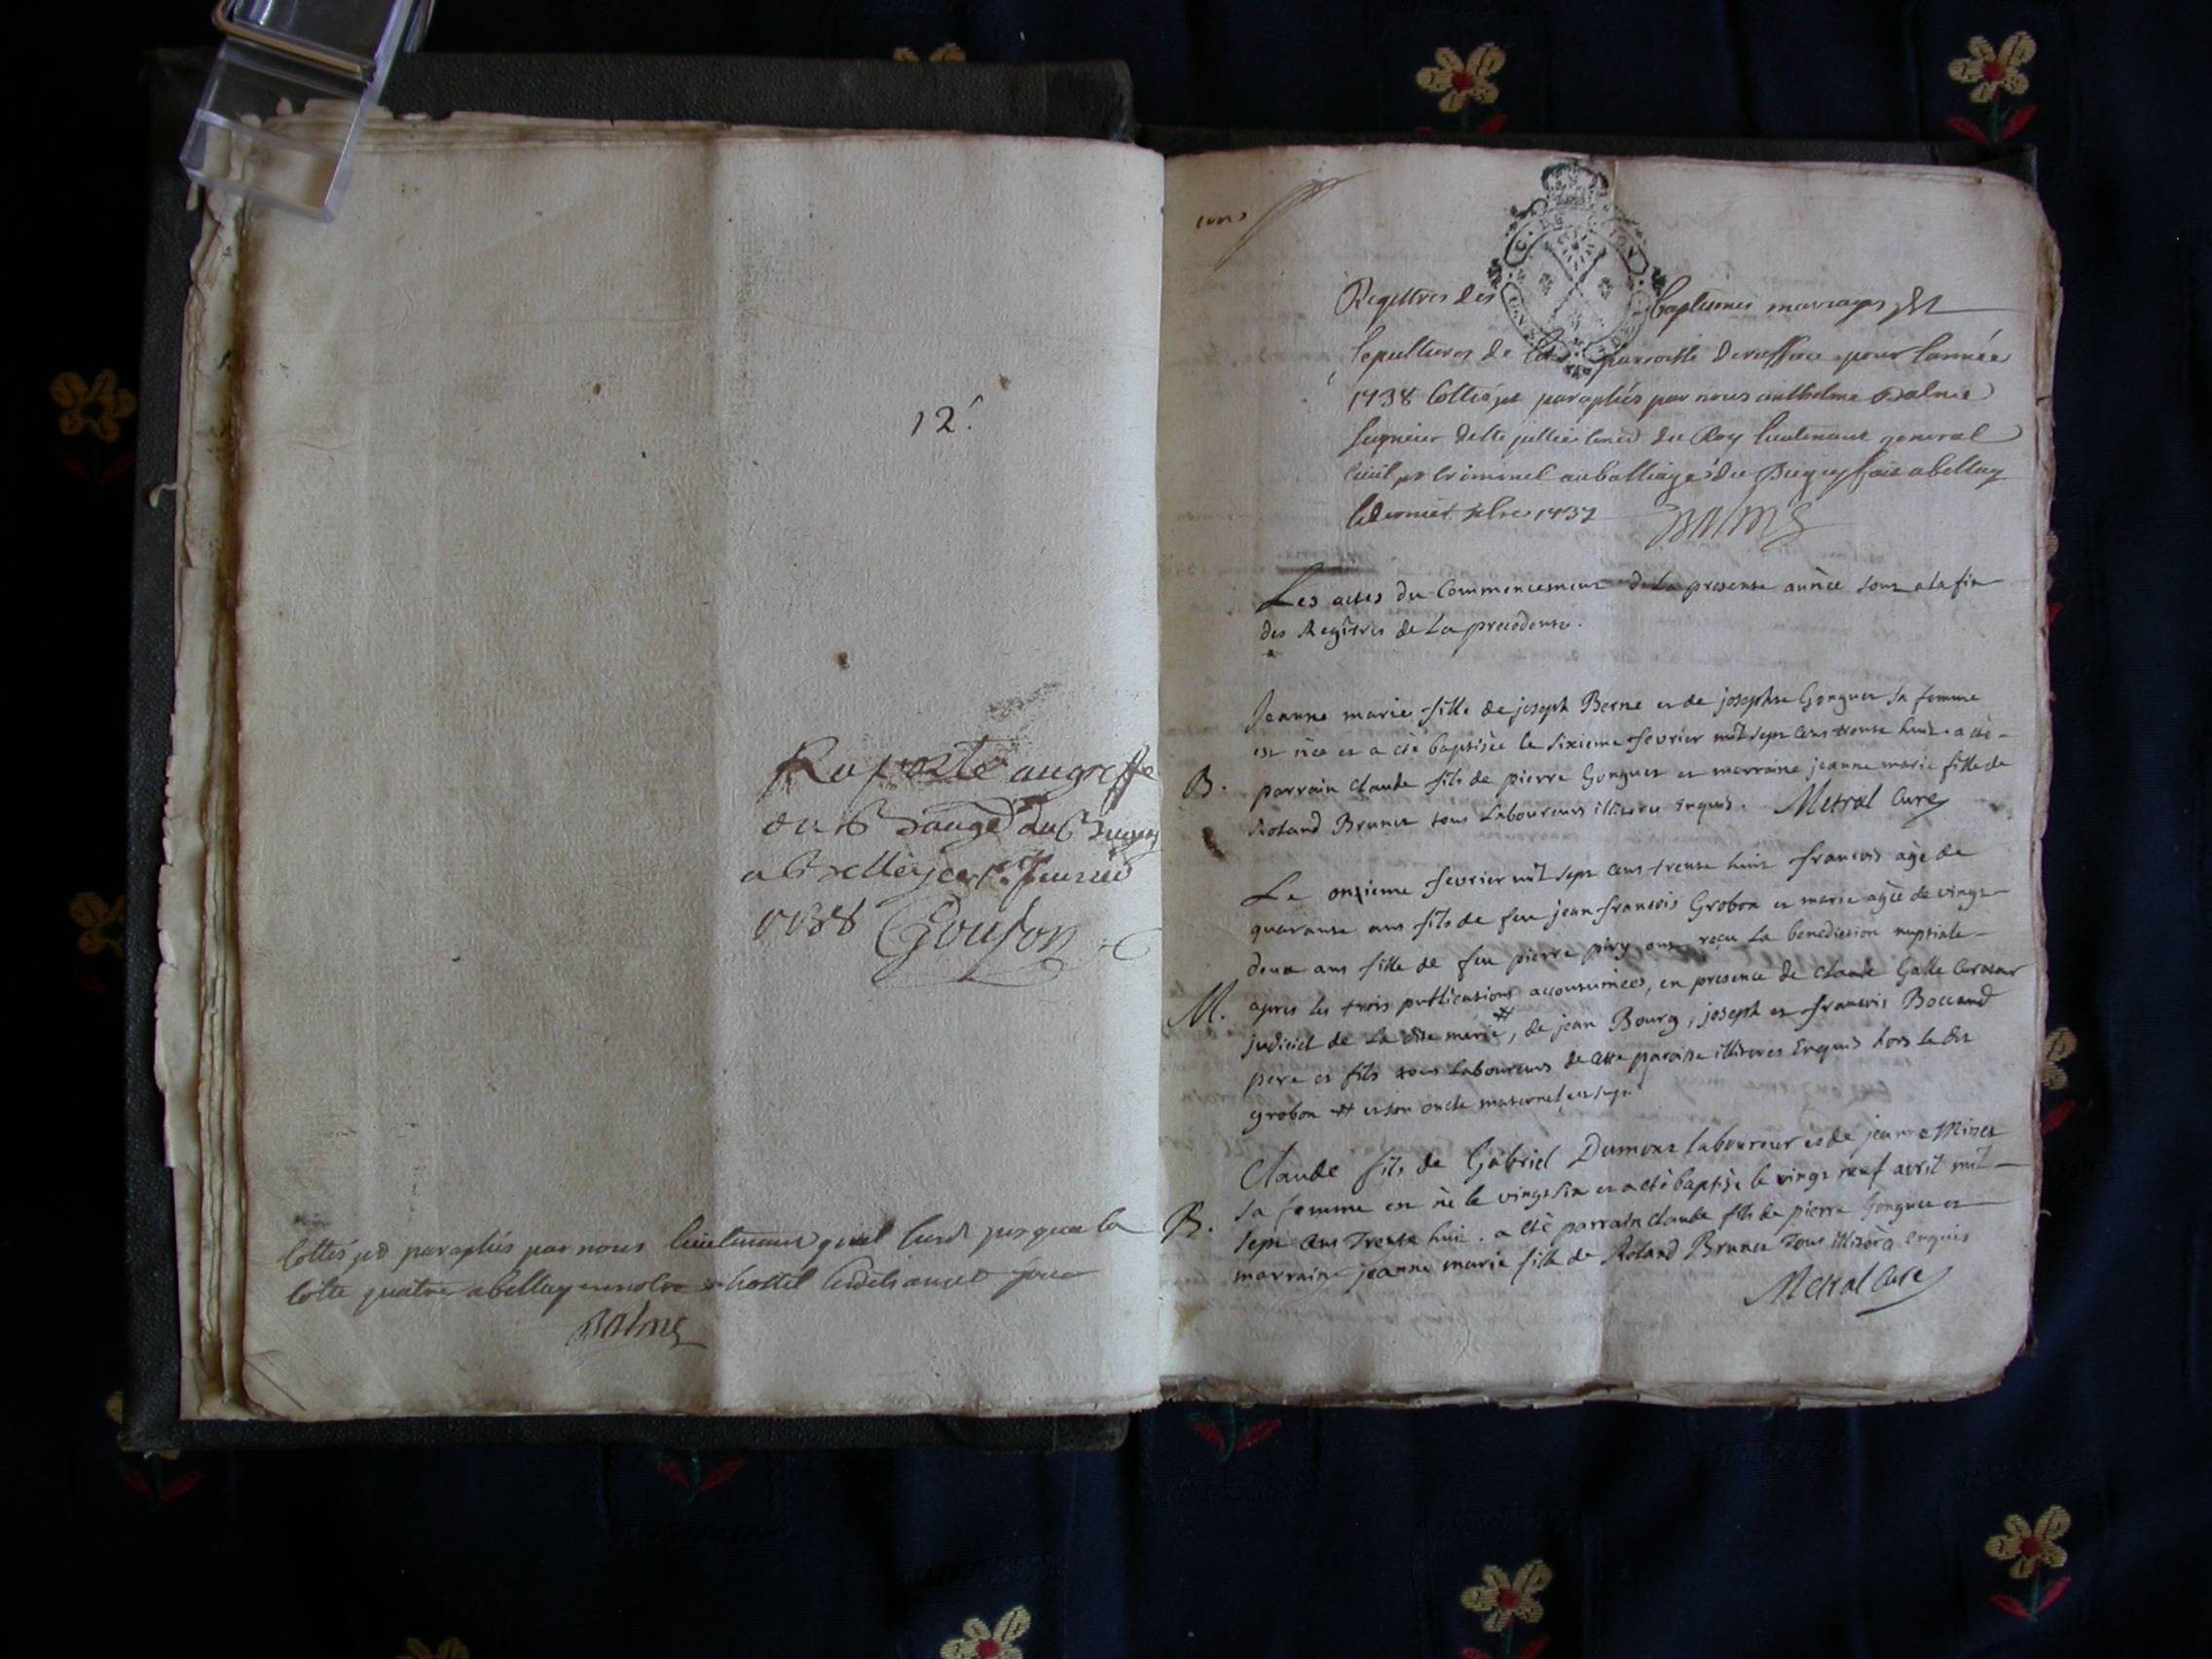 12.
Raporté au greffe
du Bugey
a Belley ce 1er Janvier
1738 Goujon
Cottés et paraphés par nous lieutenant jusques la
cotte quatre a belley en notre hostel
Balme
Registres des baptemes mariages et
sepultures de la parroisse pour l'année
1738 Cottés et paraphés par nous anthelme Balme
du Roy lieutenant general
civil et criminel au balliage du Bugey fait a belley
le dernier 1737 Balme
Les actes du Commencement de la presente année sont a la fin
des Regitres de La precedente.
Jeanne marie fille de joseph Berne et de josephte Gonguet sa femme
est née et a eté baptisée le sixieme fevrier mil sept cens trente huit. a eté
B. parrain Claude fils de pierre Gonguet et marraine jeanne marie fille de
Roland Brunet tous Laboureurs enquis. Metral Curé
Le onzieme fevrier mil sept cens trente huit francois agé de
quarante ans fils de feu jean francois Grobon et marie agée de vingt
deux ans fille de feu pierre piry ont reçu La benediction nuptiale
apres les trois publications accoutumées, en presence de Claude Galle Curateur
M. judiciel de La dite marie #, de jean Bourg, joseph et francois Boccand
pere et fils tous Laboureurs de cette paroisse illiteres Enquis hors le dit
grobon # et son oncle maternel
Claude fils de Gabriel Dumont laboureur et de jeanne Minet
sa femme est né le vingt six et a eté baptisé le vingt neuf avril mil
B. sept cens Trente huit. a eté parrain claude fils de pierre Gonguet et
marraine jeanne marie fille de Roland Brunet Tous enquis
Metral Curé